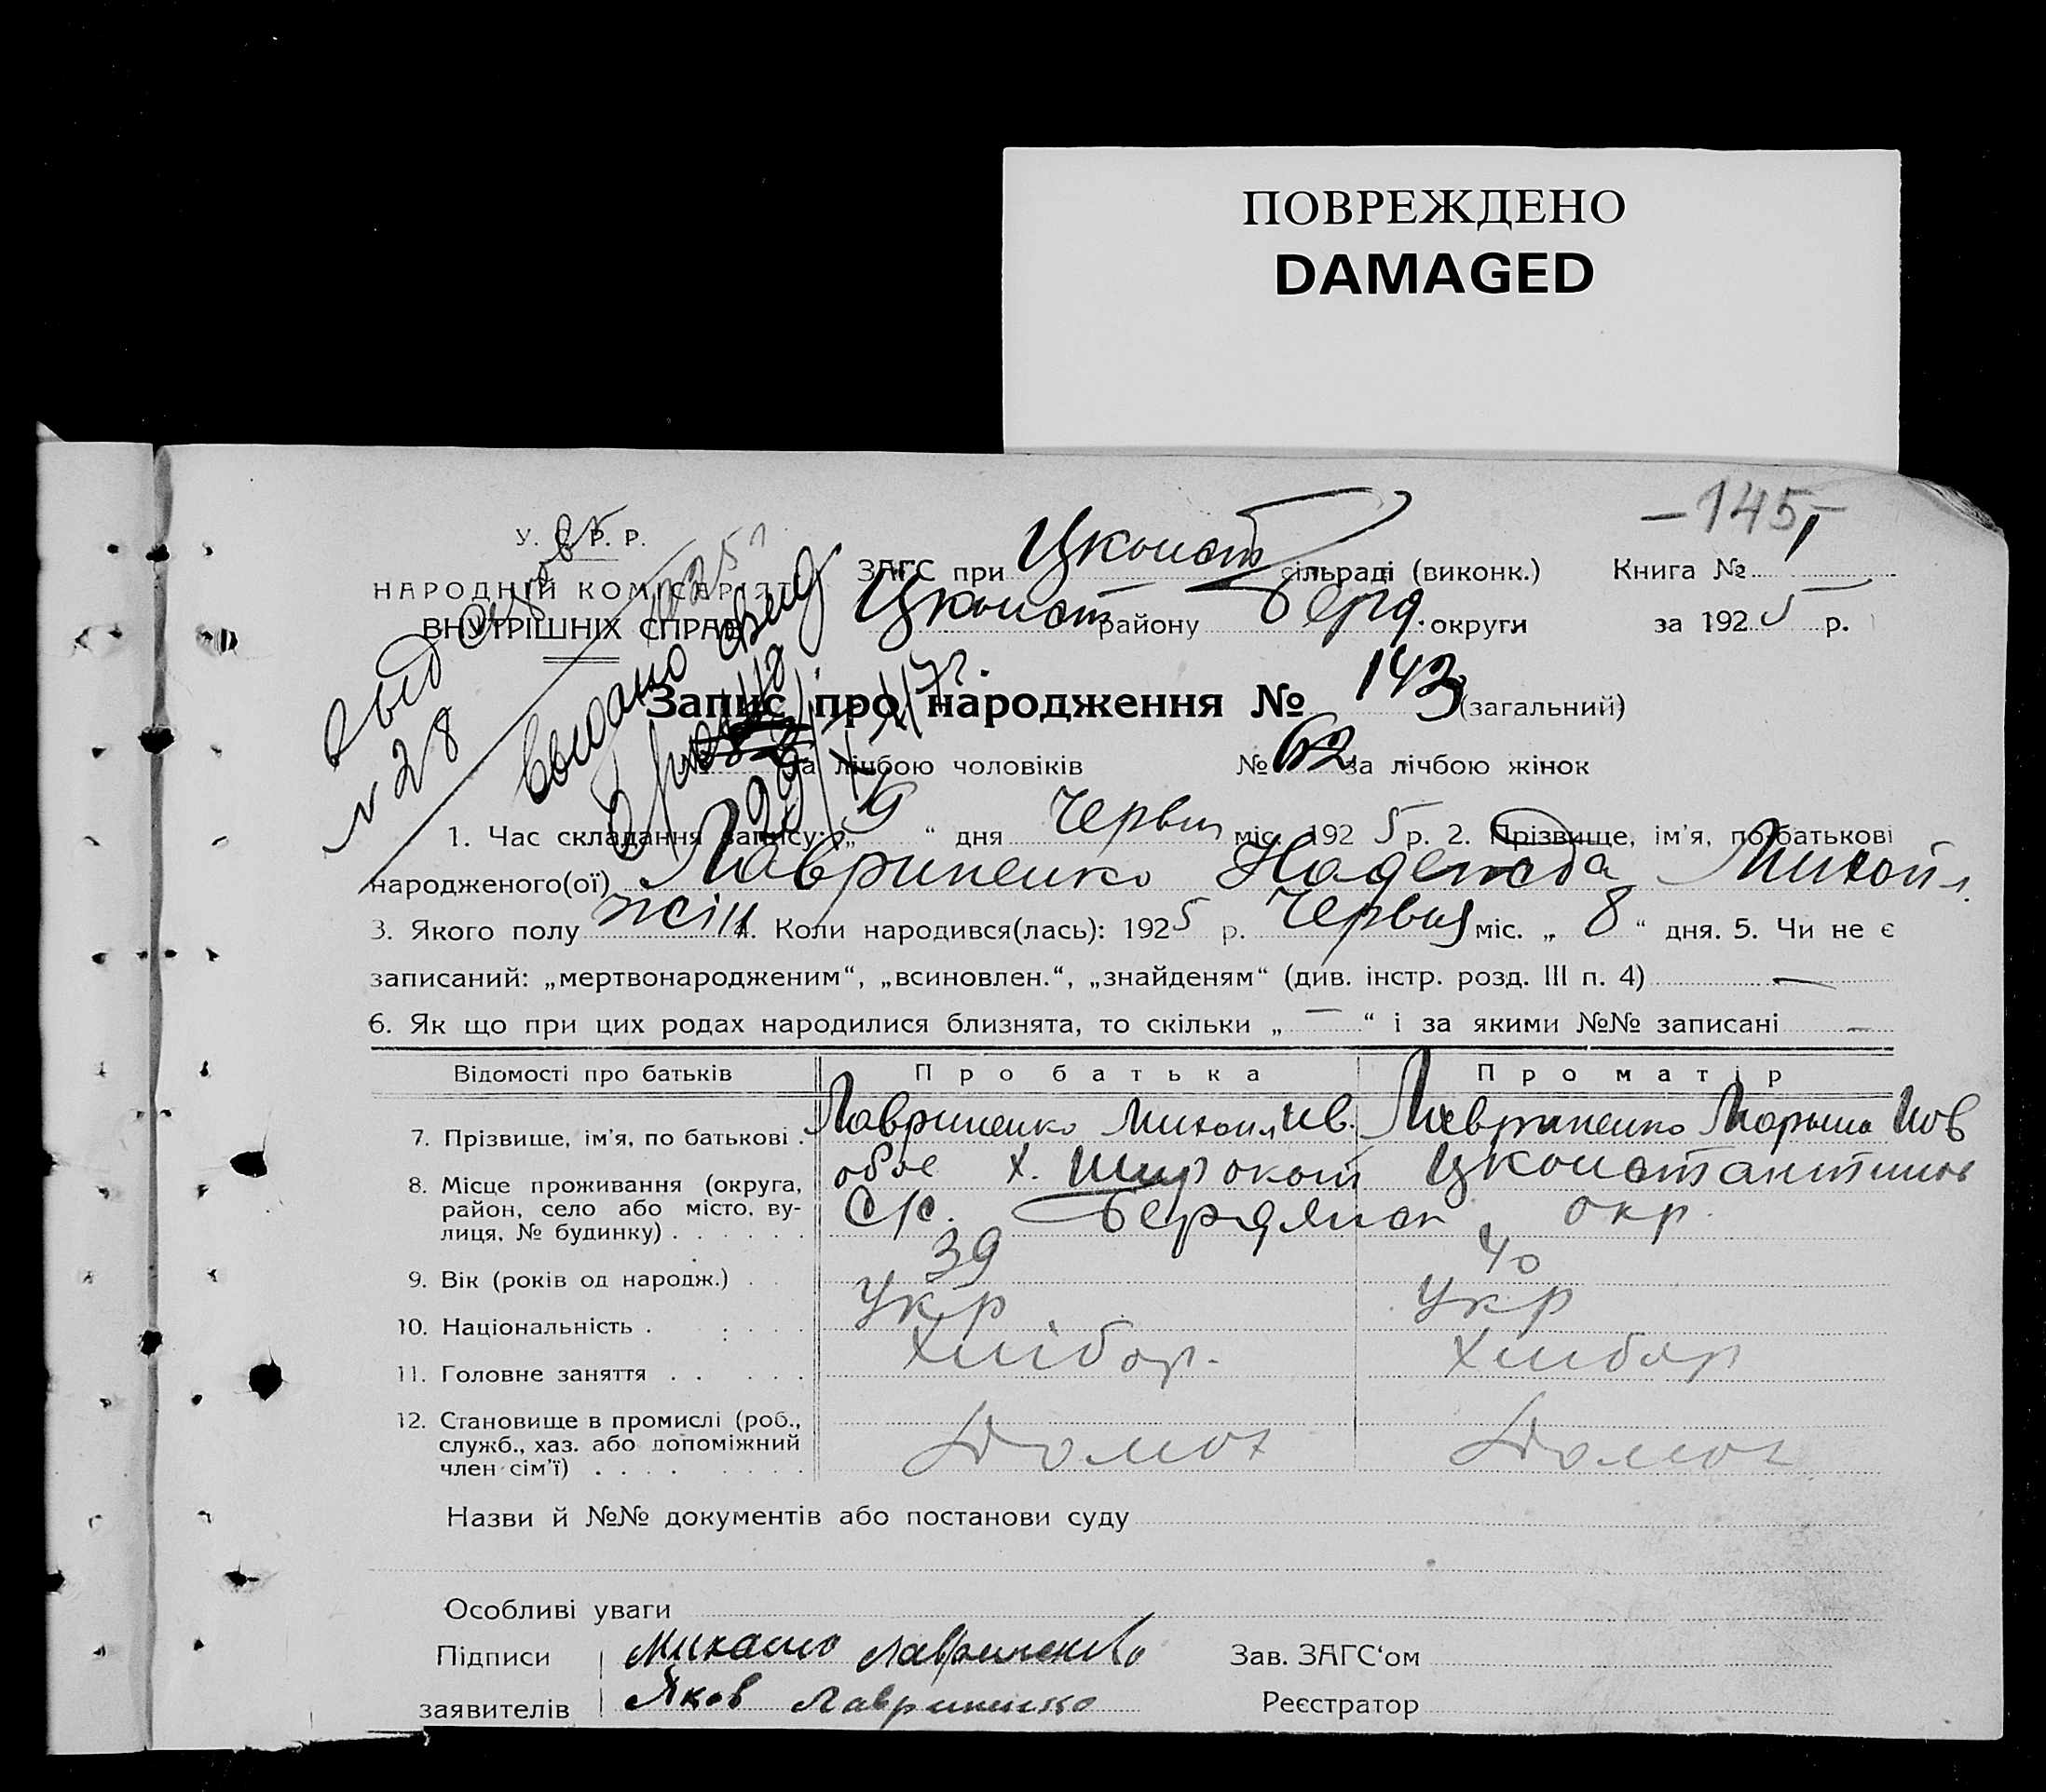 ПОВРЕЖДЕНО
DAMAGED
-145-
У. С. Р. Р.
НАРОДНІЙ КОМІСАРІЯТ
ВНУТРІШНІХ СПРАВ
ЗАГС при Цконст сільраді (виконк.) Книга № 1
Цконст району Берд. округи за 1925 р.
№ 28
Запис про народження № 143 (загальний)
за лічбою чоловіків № 62 за лічбою жінок
1. Час складання запису: „9“ дня Червня міс. 1925 р. 2. Прізвище, ім'я, по батькові
народженого(ої) Лавриненко Надежда Михайл.
3. Якого полу жін 4. Коли народився(лась): 1925 р. Червня міс. „8“ дня. 5. Чи не є
записаний: „мертвонародженим“, „всиновлен.“, „знайденям“ (див. інстр. розд. III п. 4) —
6. Як що при цих родах народилися близнята, то скільки „—“ і за якими №№ записані —
Відомості про батьків Про батька Про матір
7. Прізвище, ім'я, по батькові . Лавриненко Михаил Ив. Лавриненко Марына
8. Місце проживання (округа, район, село або місто, вулиця, № будинку) . . . . . . обое х. Широкой Цконстантинов
С/с. Бердянск окр.
9. Вік (років од народж.) . 39 40
10. Національність . . . . . Укр Укр
11. Головне заняття . . . . Хлібор. Хлибор
12. Становище в промислі (роб., служб., хаз. або допоміжний член сім'ї) . . . . . . . .
Назви й №№ документів або постанови суду
Особливі уваги
Підписи Михайло Лавриненко Зав. ЗАГС'ом
заявителів Яков Лавриненко Реєстратор